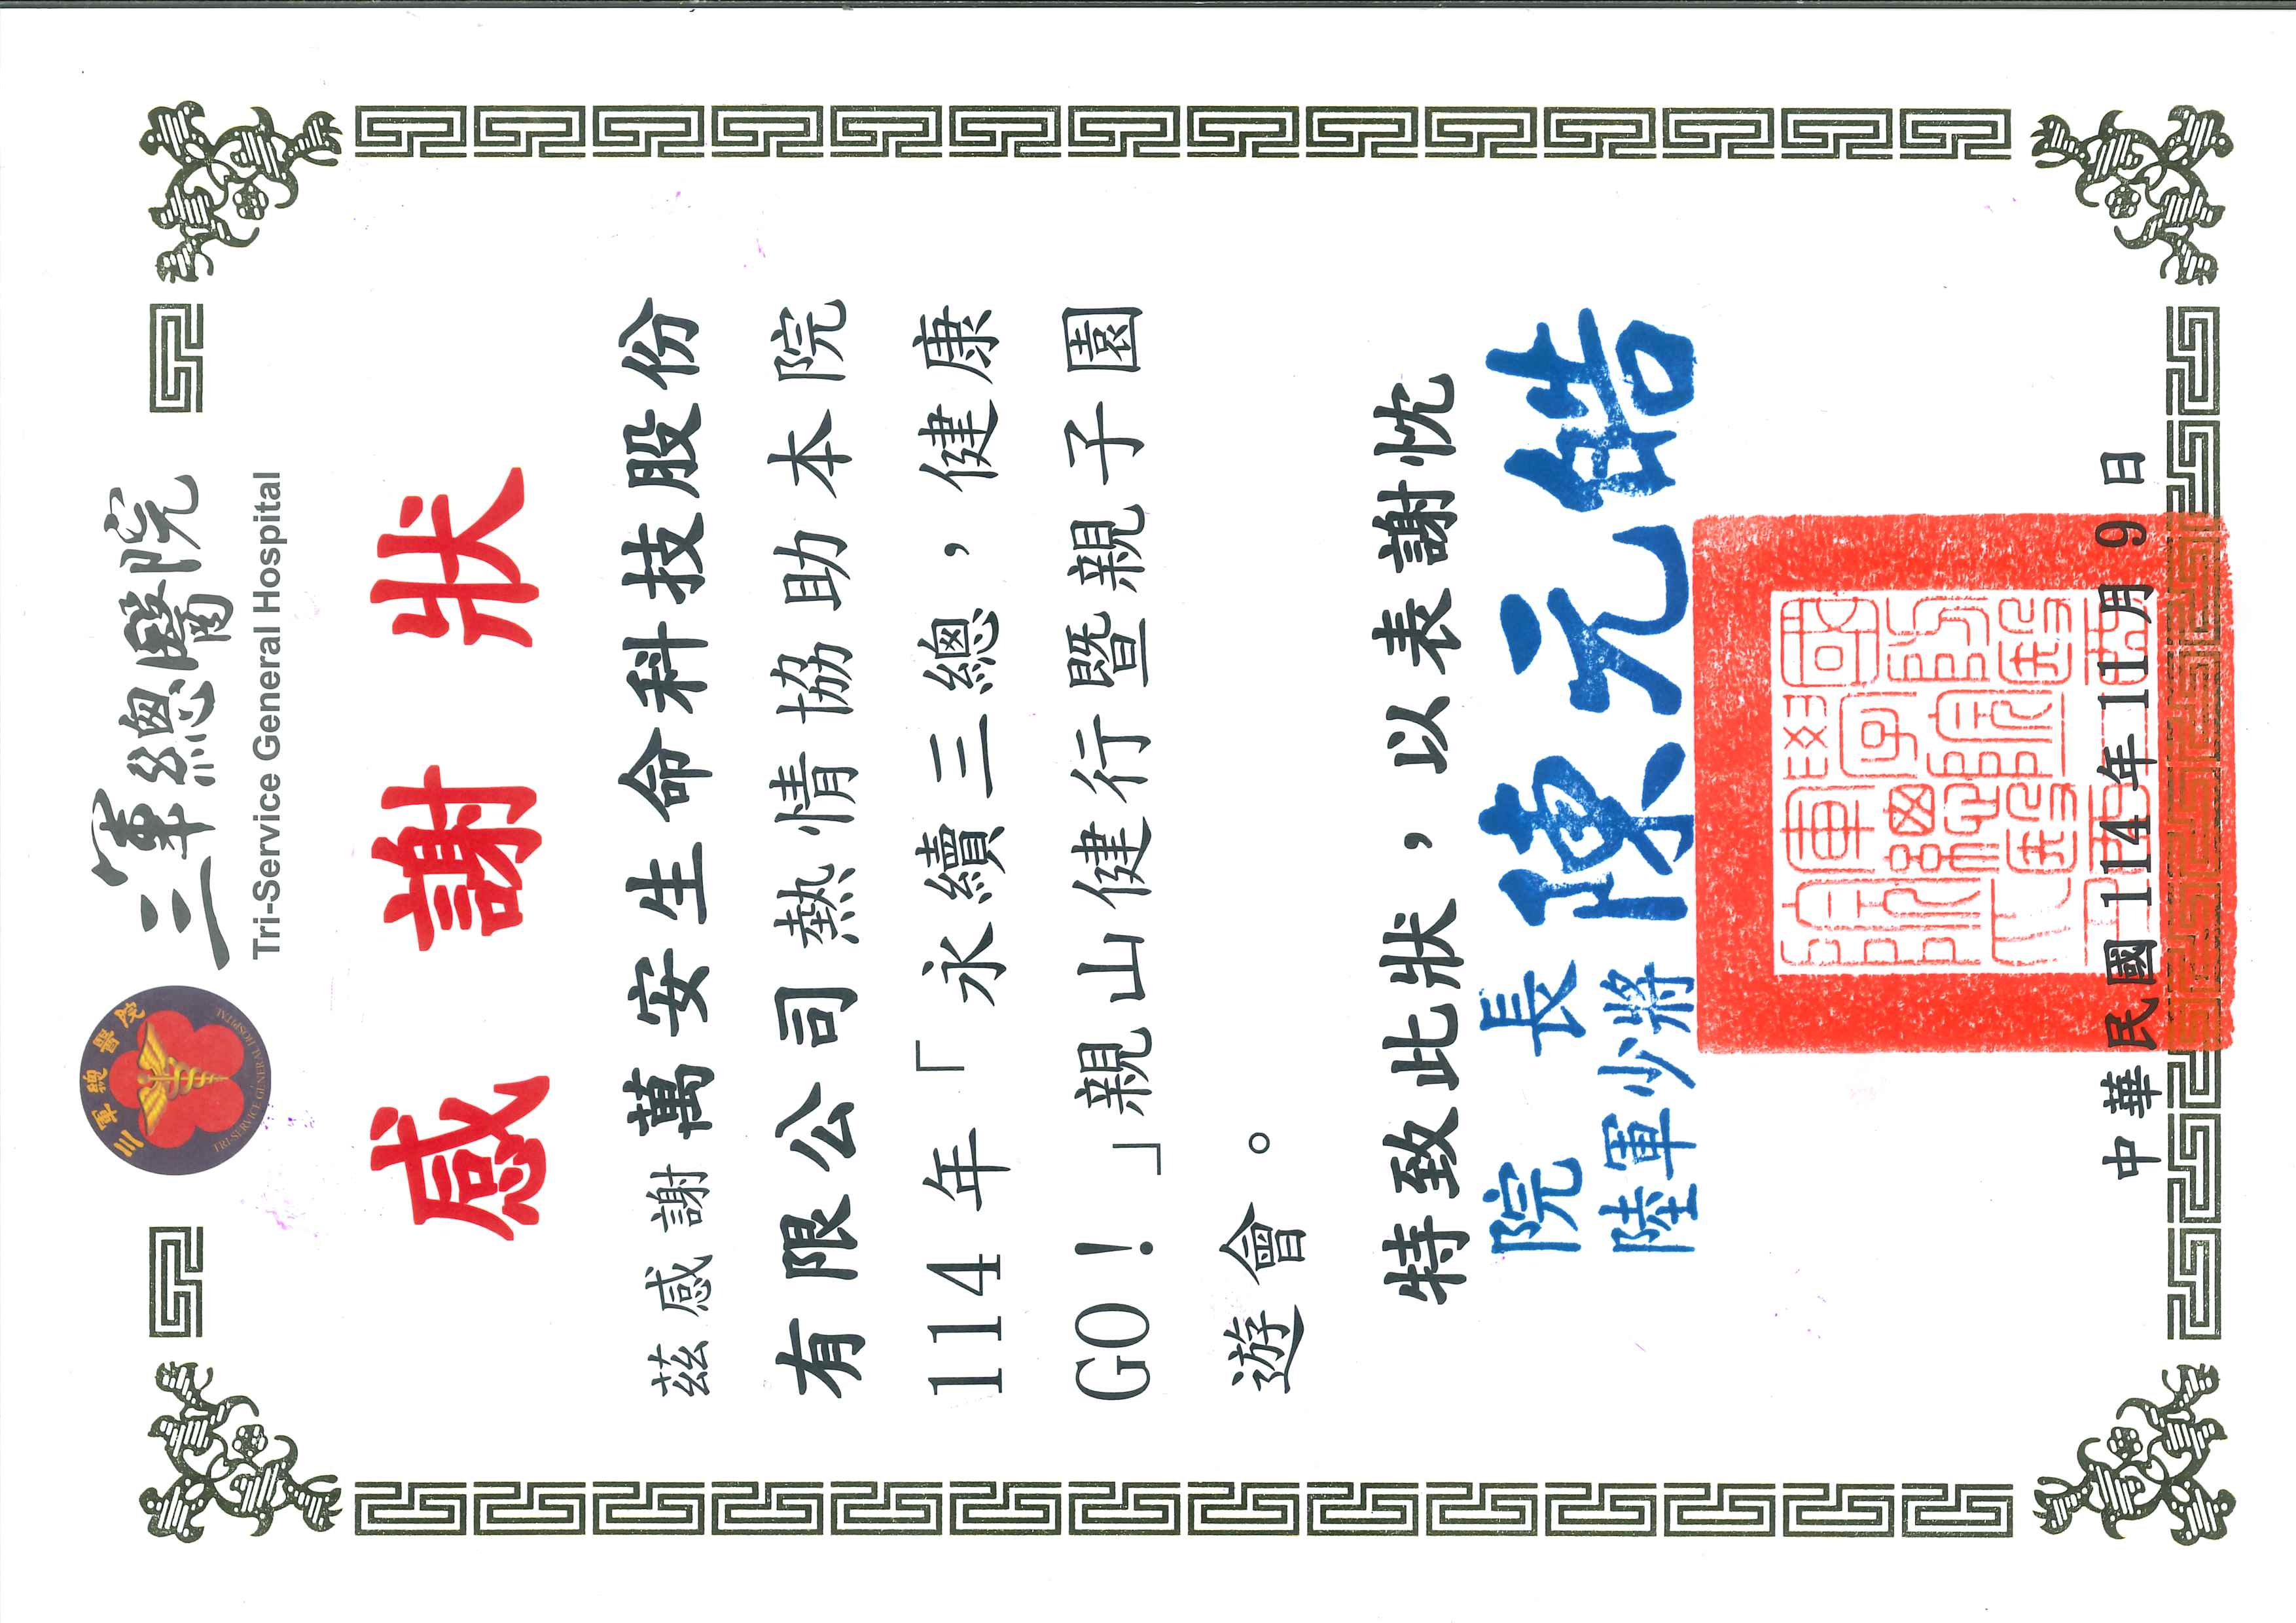 三軍總醫院
TRI-SERVICE GENERAL HOSPITAL
三軍總醫院
Tri-Service General Hospital
感謝狀
茲感謝萬安生命科技股份
有限公司熱情協助本院
114年「永續三總，健康
GO！」親山健行暨親子園
遊會。
特致此狀，以表謝忱
院長 陳元皓
陸軍少將
中華民國114年11月9日